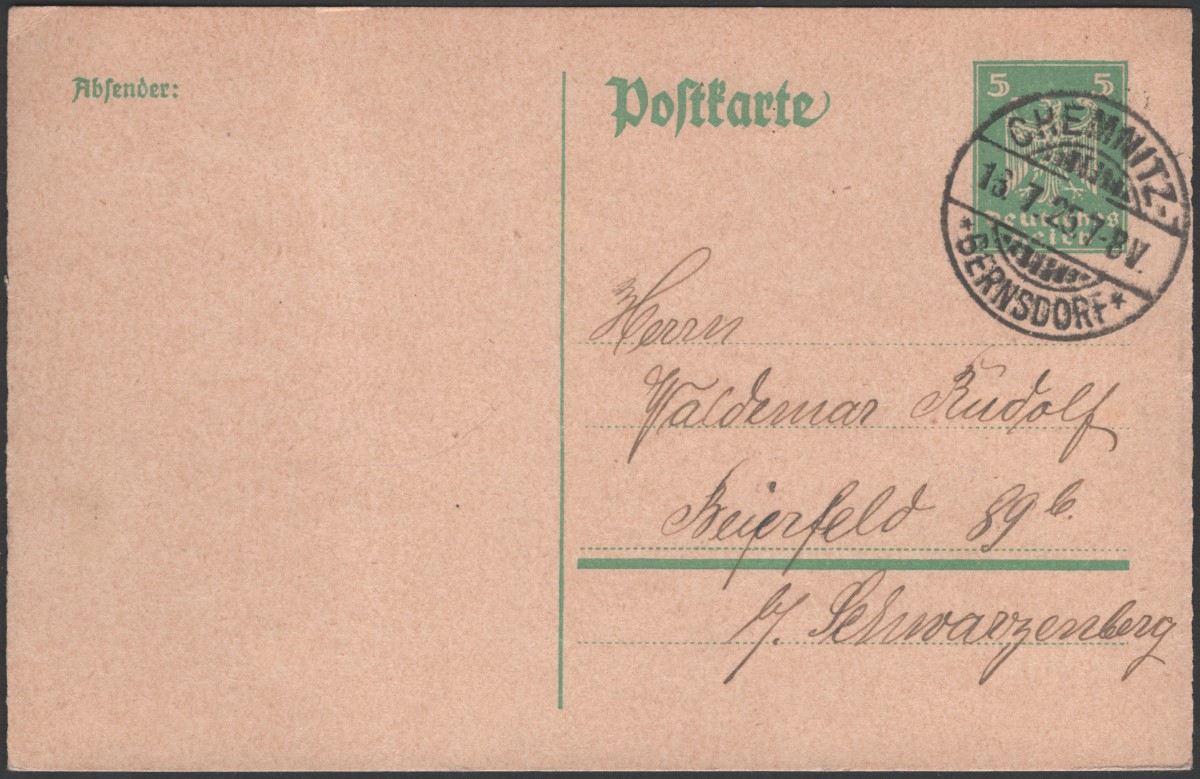 Absender:
Postkarte
5 5
Deutsches
Reich
CHEMNITZ-
7.25.7-8V.
*BERNSDORF*
Herrn
Waldemar Rudolf
Beierfeld 89b.
b/. Schwarzenberg